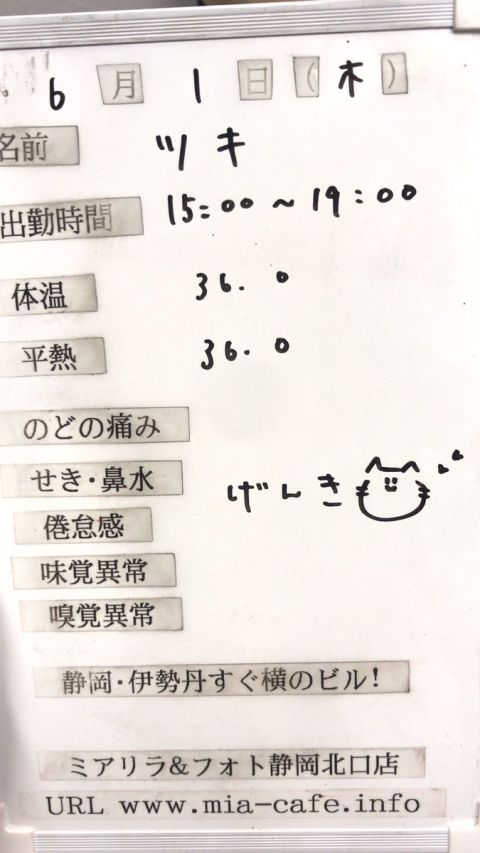 6月1日(木)
名前 ツキ
出勤時間 15:00～19:00
体温 36.0
平熱 36.0
のどの痛み
せき・鼻水 げんき
倦怠感
味覚異常
嗅覚異常
静岡・伊勢丹すぐ横のビル!
ミアリラ&フォト静岡北口店
URL www.mia-cafe.info